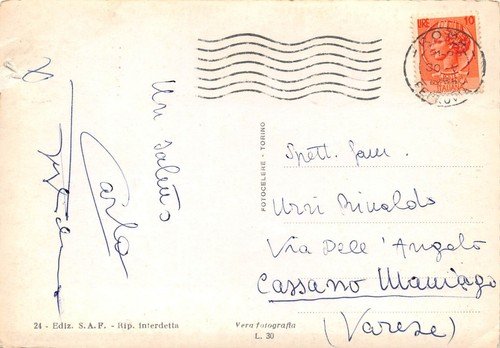 LIRE 10
ROMA
FERROVIA
Un saluto
Carlo
FOTOCELERE - TORINO
Spett. Fam.
Urri Rinaldo
Via Dell'Angelo
Cassano Maniago
(Varese)
24 - Ediz. S.A.F. - Rip. interdetta
Vera fotografia
L. 30